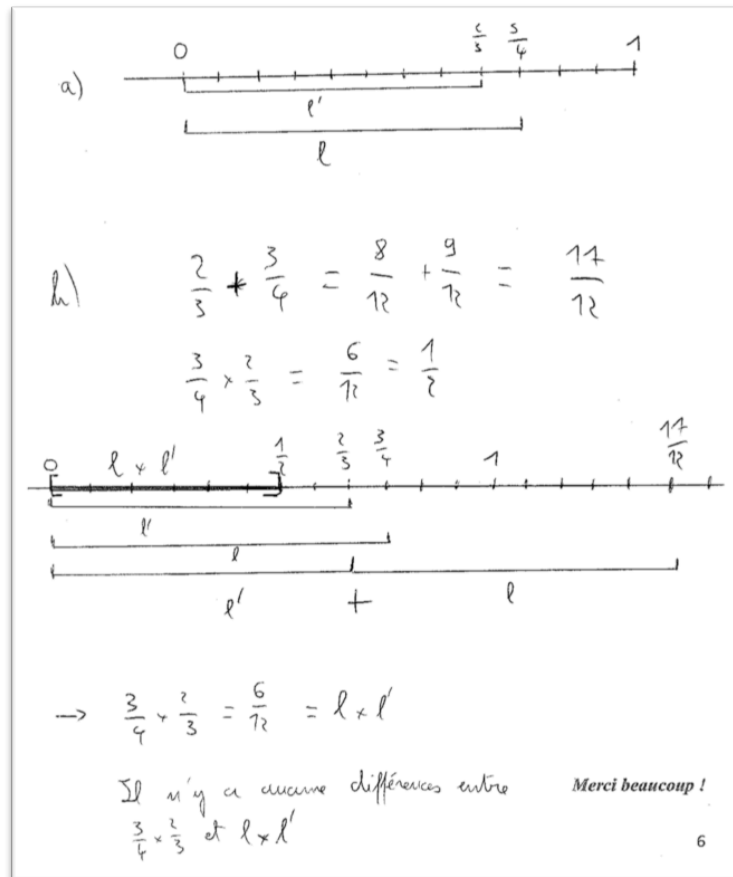 0 2/3 3/4 1
a)
l'
l
b) 2/3 + 3/4 = 8/12 + 9/12 = 17/12
3/4 × 2/3 = 6/12 = 1/2
0 l × l' 1/2 2/3 3/4 1 17/12
l'
l
l' + l
→ 3/4 × 2/3 = 6/12 = l × l'
Il n'y a aucune différences entre
3/4 × 2/3 et l × l'
Merci beaucoup !
6